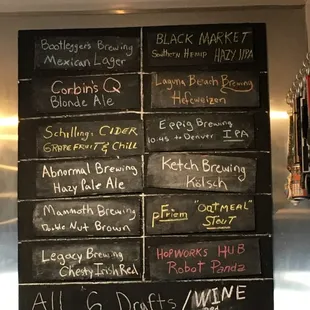 Bootlegger's Brewing
Mexican Lager
Corbin's Q
Blonde Ale
Schilling: CIDER
GRAPEFRUIT & Chill
Abnormal Brewing
Hazy Pale Ale
Mammoth Brewing
Double Nut Brown
Legacy Brewing
Chesty Irish Red
BLACK MARKET
Southern Hemisp HAZY IPA
Laguna Beach Brewing
Hefeweizen
Eppig Brewing
10:45 to Denver IPA
Ketch Brewing
Kölsch
pFriem "OATMEAL"
STOUT
HOPWORKS HUB
Robot Panda
All 6 Drafts/WINE